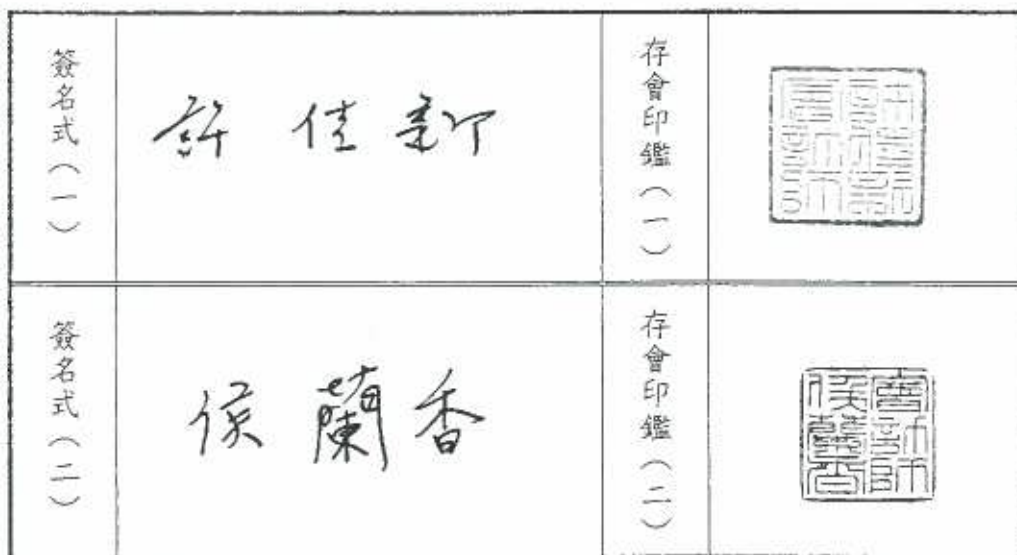 簽名式(一)
許佳
存會印鑑(一)
簽名式(二)
侯蘭香
存會印鑑(二)
會計師
侯蘭香